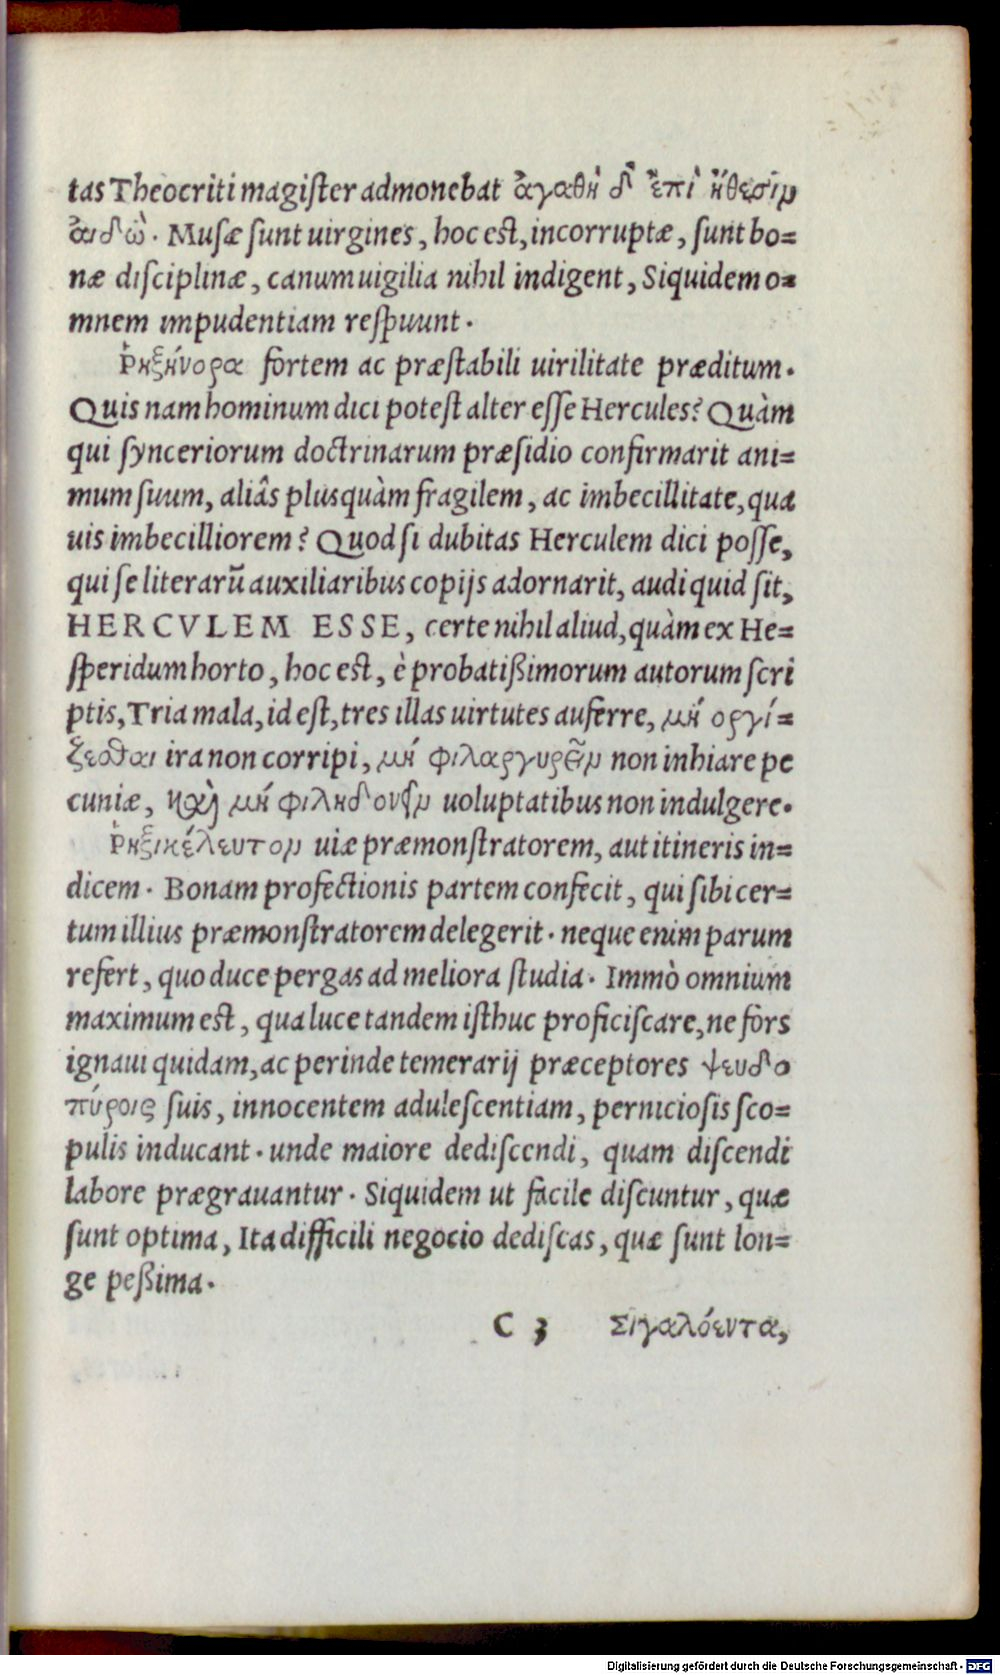 tas Theocriti magiſter admonebat ἀγαθὴ δ' ἐπὶ ἤθεσιν
αἰδώ. Muſæ ſunt uirgines, hoc eſt, incorruptæ, ſunt bo=
næ diſciplinæ, canum uigilia nihil indigent, Siquidem o=
mnem impudentiam reſpuunt.
Ῥηξήνορα fortem ac præſtabili uirilitate præditum.
Quis nam hominum dici poteſt alter eſſe Hercules? Quàm
qui ſynceriorum doctrinarum præſidio confirmarit ani=
mum ſuum, aliâs pluſquàm fragilem, ac imbecillitate, qua
uis imbecilliorem? Quod ſi dubitas Herculem dici poſſe,
qui ſe literarũ auxiliaribus copijs adornarit, audi quid ſit,
HERCVLEM ESSE, certe nihil aliud, quàm ex He=
ſperidum horto, hoc eſt, è probatißimorum autorum ſcri
ptis, Tria mala, id eſt, tres illas uirtutes auferre, μὴ ὀργί=
ζεσθαι ira non corripi, μὴ φιλαργυρεῖν non inhiare pe
cuniæ, καὶ μὴ φιληδονεῖν uoluptatibus non indulgere.
Ῥηξικέλευτον uiæ præmonſtratorem, aut itineris in=
dicem. Bonam profectionis partem confecit, qui ſibi cer=
tum illius præmonſtratorem delegerit. neque enim parum
refert, quo duce pergas ad meliora ſtudia. Immò omnium
maximum eſt, qua luce tandem iſthuc proficiſcare, ne fors
ignaui quidam, ac perinde temerarij præceptores ψευδο
πύροις ſuis, innocentem aduleſcentiam, pernicioſis ſco=
pulis inducant. unde maiore dediſcendi, quam diſcendi
labore prægrauantur. Siquidem ut facile diſcuntur, quæ
ſunt optima, Ita difficili negocio dediſcas, quæ ſunt lon=
ge peßima.
C 3 Σιγαλόεντα,
Digitalisierung gefördert durch die Deutsche Forschungsgemeinschaft - DFG